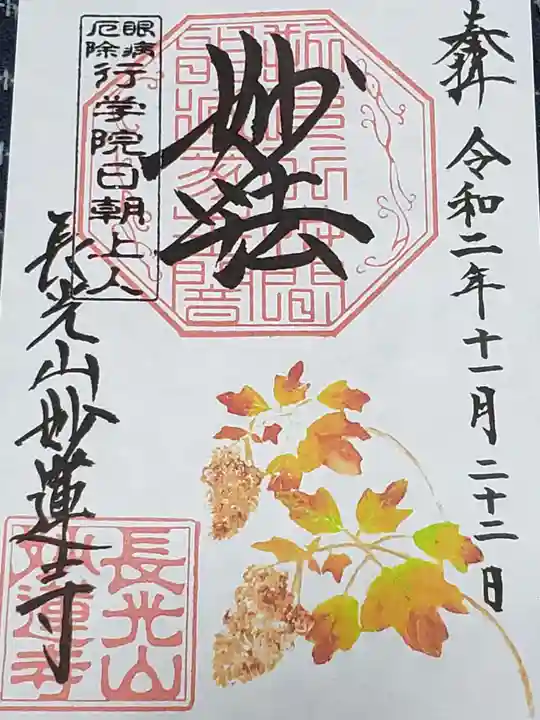 奉拝
令和二年十一月二十二日
妙法
眼病
厄除
行学院日朝上人
長光山妙蓮寺
長光山
妙蓮寺